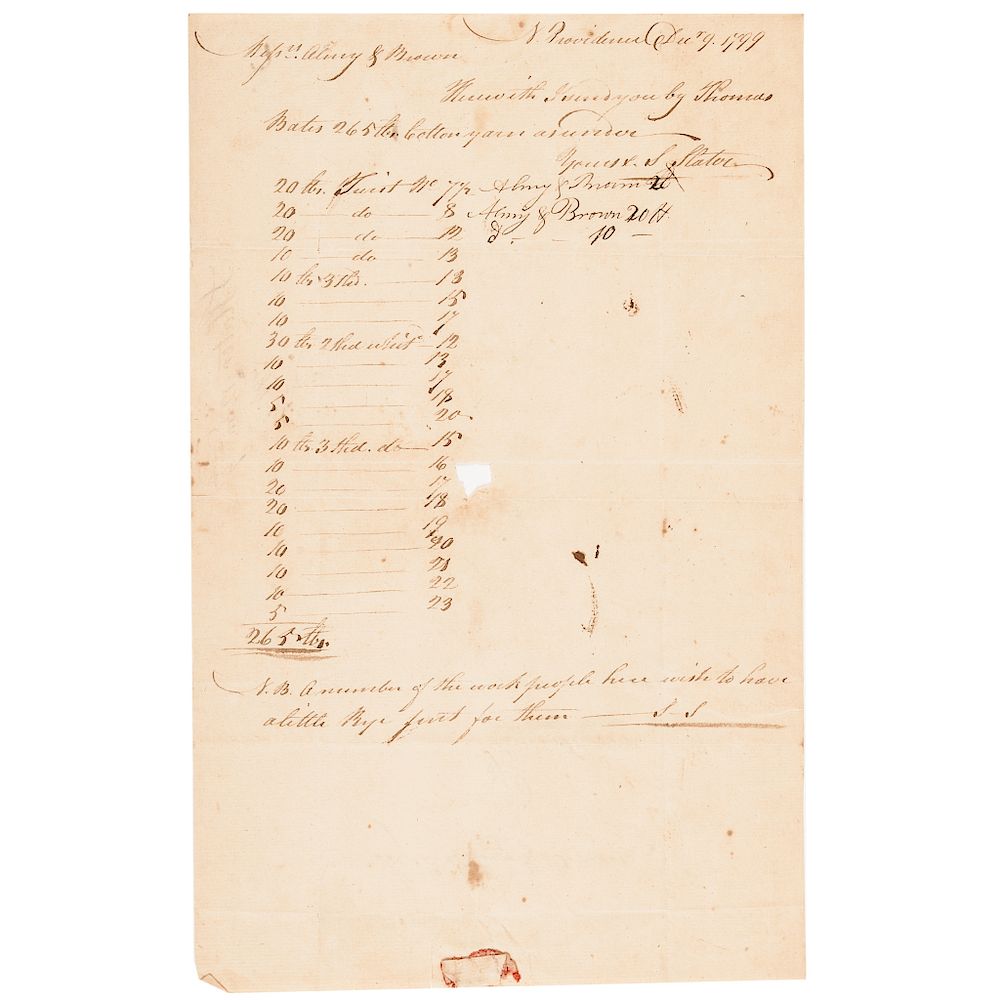 N. Providence Decr 9. 1799
Messrs. Almy & Brown
Herewith I send you by Thomas
Bates 265 lbs. Cotton yarn as under
Yours &. S Slater
20 lbs. Twist No 7½ Almy & Brown 20
20 — do — 8 Almy & Brown 20 H.
20 — do — 12 do. — 10 —
10 — do — 13
10 lbs 3 thd. — 13
10 — 15
10 — 17
30 lbs 2 thd whit — 12
10 — 13
10 — 17
5 — 18
5 — 20
10 lbs 3 thd. do — 15
10 — 16
20 — 17
20 — 18
10 — 19
10 — 20
10 — 21
10 — 22
5 — 23
265 lbs.
N.B. A number of the work people here wish to have
a little Rye sent for them — S S